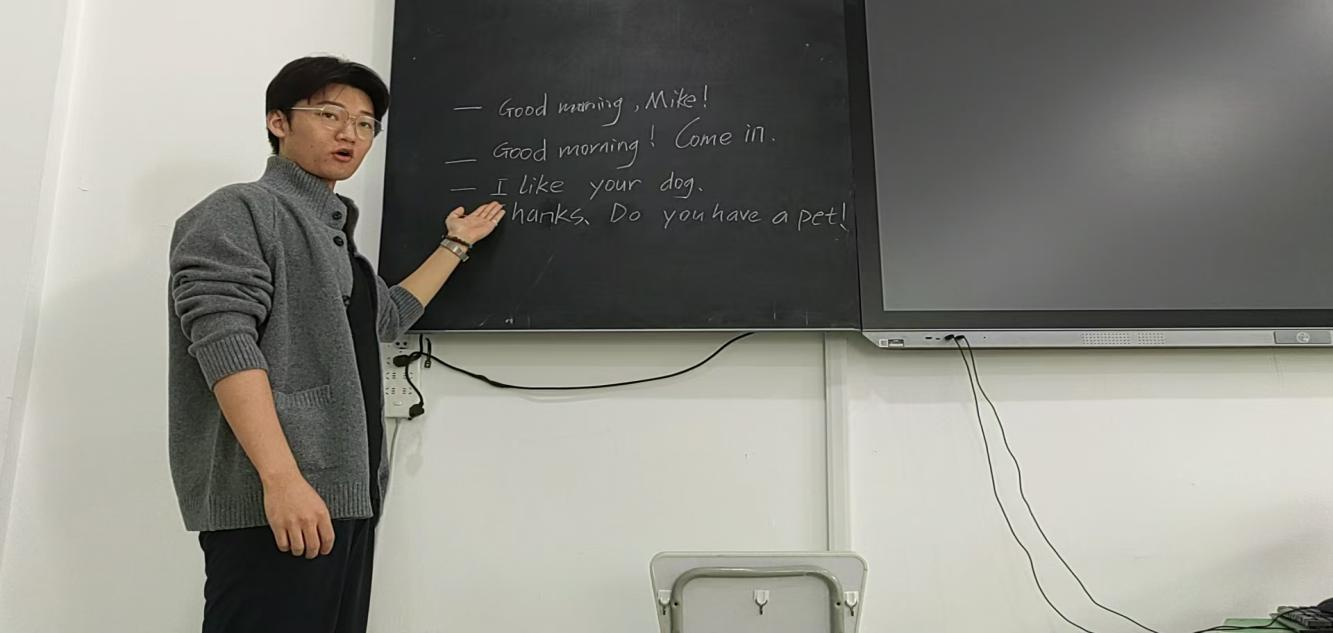 — Good morning, Mike!
— Good morning! Come in.
— I like your dog.
Thanks. Do you have a pet!